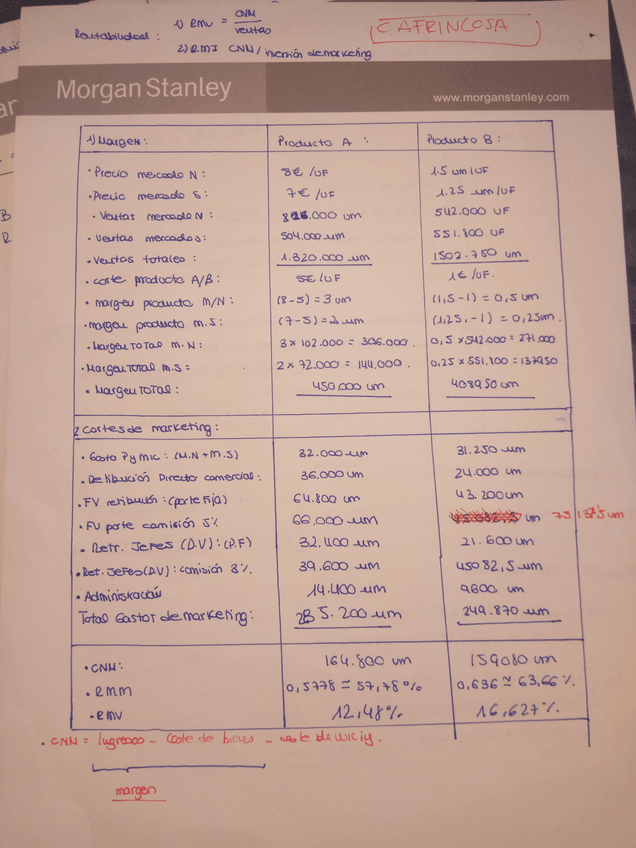 Rentabilidad : 1) RMV = CNM / ventas
2) RMI CNM / inversión de marketing
CAFRINCOSA
Morgan Stanley
www.morganstanley.com
1) Margen: Producto A : Producto B :
· Precio mercado N : 8€ /UF 1.5 um/UF
· Precio mercado S : 7€ /UF 1.25 um/UF
· Ventas mercado N : 816.000 um 542.000 UF
· Ventas mercado S: 504.000 um 551.800 UF
· Ventas totales : 1.320.000 um 1502.750 um
· coste producto A/B : 5€/UF 1€/UF.
· margen producto M/N : (8-5) = 3 um (1,5-1) = 0,5 um
· margen producto M.S : (7-5) = 2 um (1,25,-1) = 0,25um.
· Margen TOTAL M.N : 3 x 102.000 = 306.000. 0,5 x 542.000 = 271.000
· Margen TOTAL M.S = 2 x 72.000 = 144.000. 0,25 x 551.800 = 137950
· Margen TOTAL : 450.000 um 408950 um
2 Costes de marketing :
· Gasto PyMIC : (M.N + M.S) 32.000 um 31.250 um
· Retibución Director comercial : 36.000 um 24.000 um
· FV retibución : (parte Fija) 64.800 um 43.200 um
· FV parte comisión 5% 66.000 um um 75137,5 um
· Retr. Jefes (D.V) : (P.F) 32.400 um 21.600 um
· Ret. Jefes (D.V) : comisión 3%. 39.600 um 45082,5 um
· Administración 14.400 um 9600 um
Total Gastos de marketing : 285.200 um 249.870 um
· CNM : 164.800 um 159080 um
· RMM 0,5778 ≃ 57,78% 0,636 ≃ 63,66%.
· RMV 12,48% 16,627%.
· CNM = Ingresos - Coste de bienes - coste de
margen